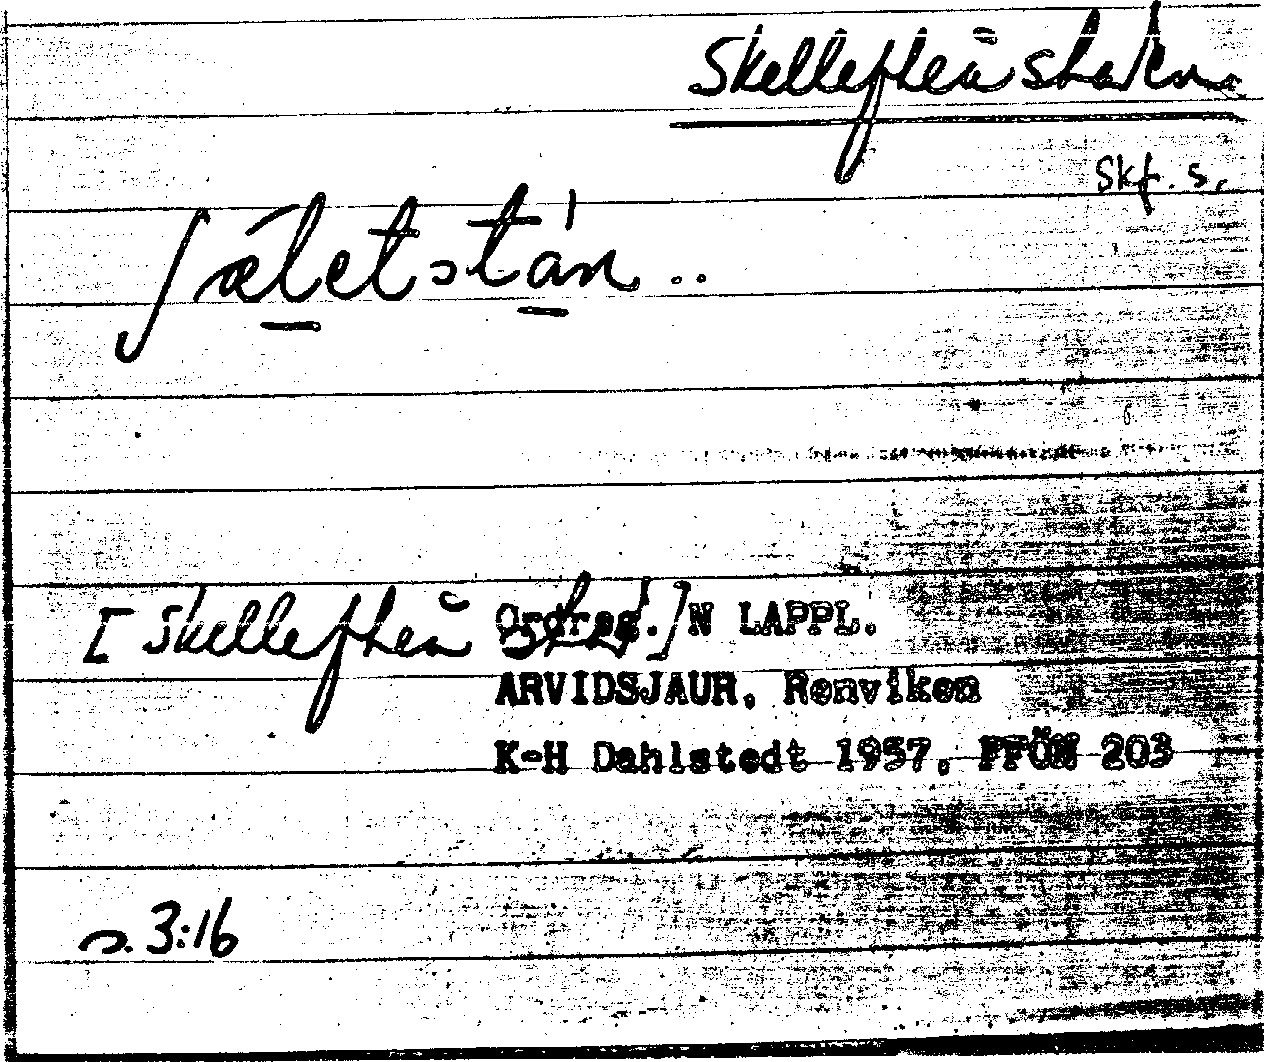 Skellefteå staden
Skf. s.
ʃæletstán ..
[Skellefteå stad] Ordreg. N LAPPL.
ARVIDSJAUR, Renviken
K-H Dahlstedt 1957, FFÖN 203
s. 3:16